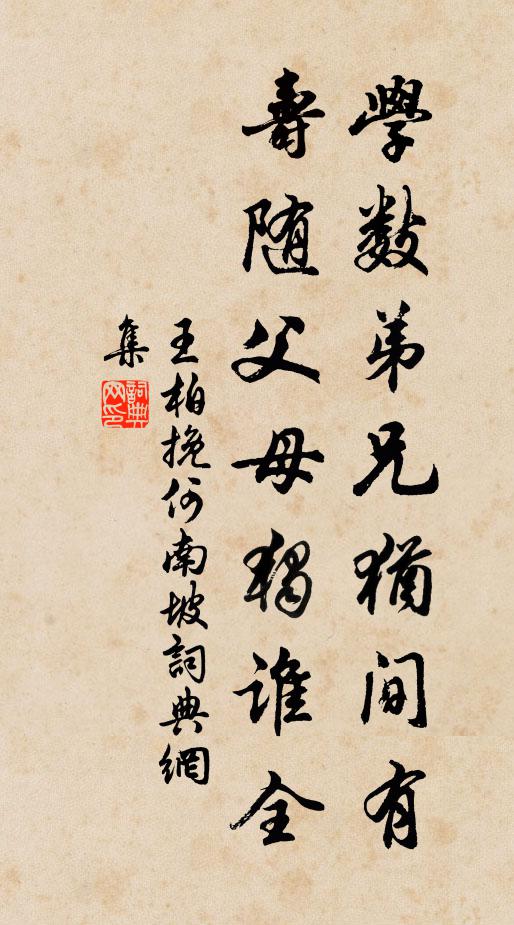 學數弟兄猶間有
壽随父母獨誰全
王柏挽何南坡詞典網
集
詞典
网印